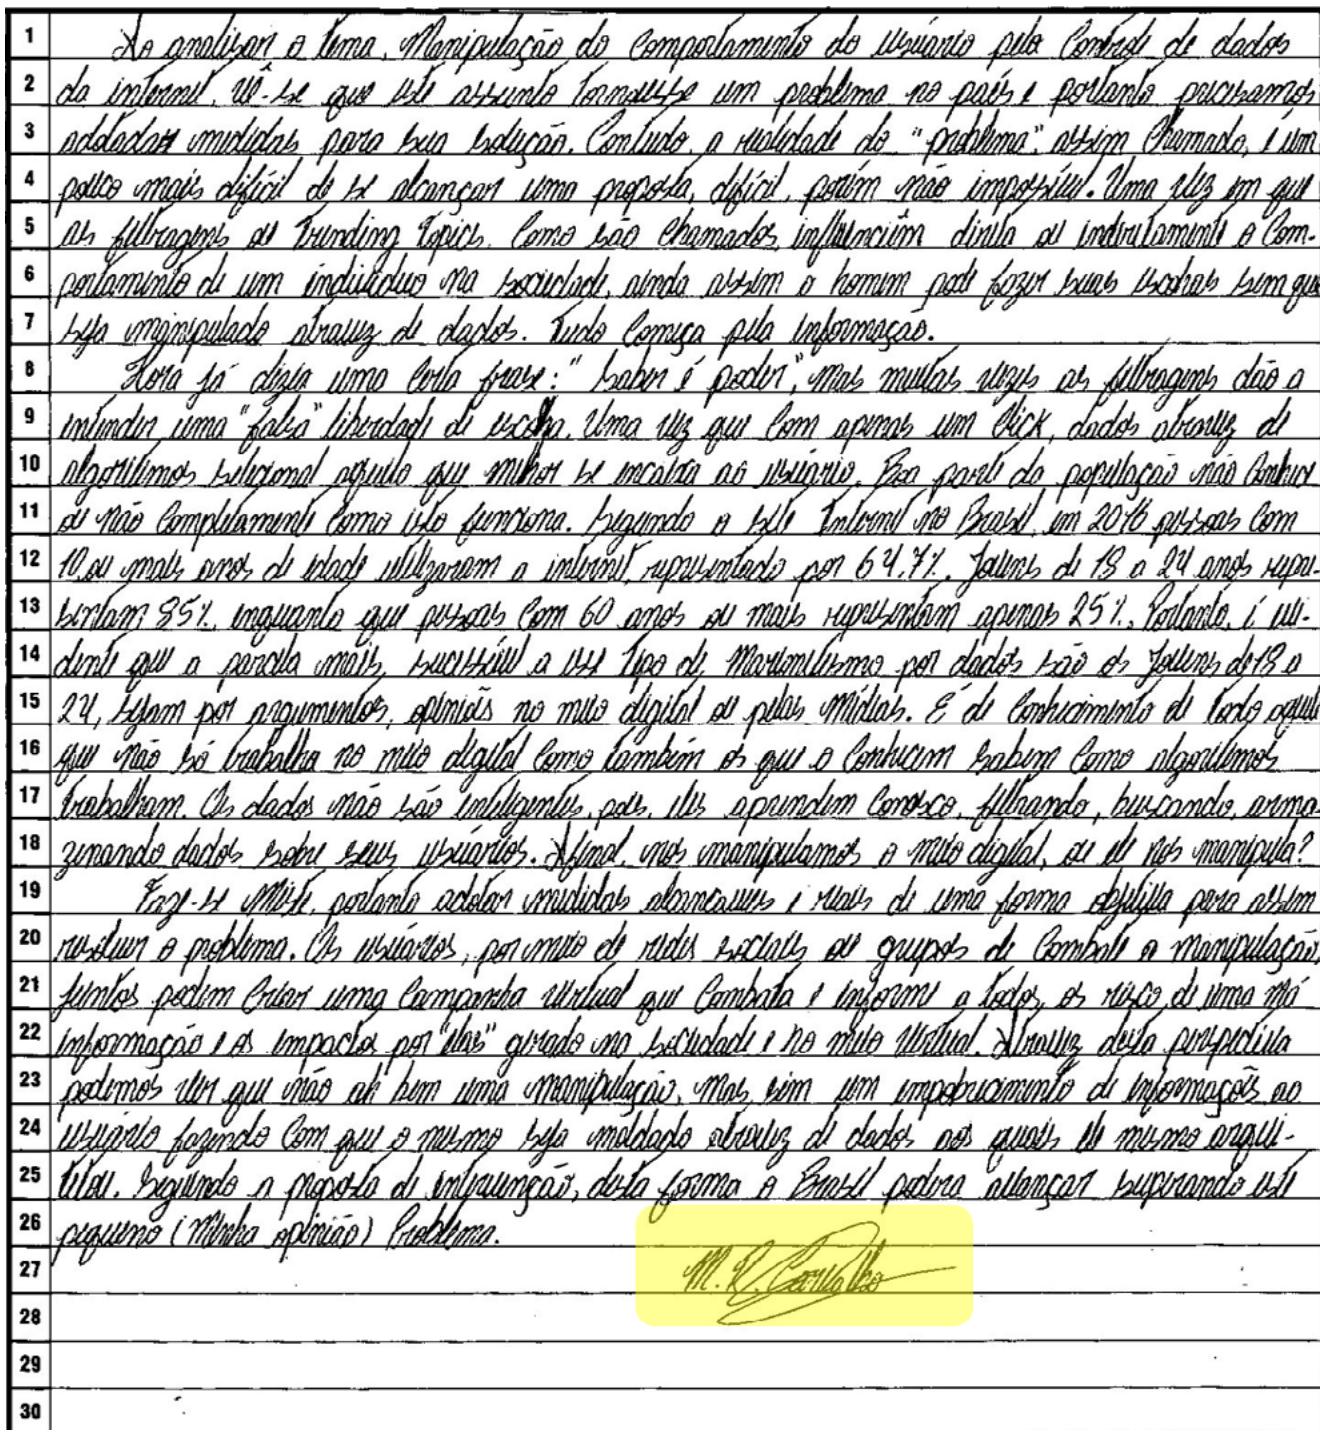 1 Ao analisar o tema, Manipulação do Comportamento do usuário pelo Controle de dados
2 da internet, vê-se que este assunto tornousse um problema no país e portanto precisamos
3 adotadar medidas para sua solução. Contudo, a realidade do "problema" assim Chamado, é um
4 pouco mais difícil de se alcançar uma proposta, difícil, porém não impossível. Uma vez em que
5 as filtragens ou Trending Topics, Como são Chamados, influenciêm direta ou indiretamente o Com-
6 portamento de um indivíduo na sociedade, ainda assim o homem pode fazer suas escohas sem que
7 seja manipulado atravez de dados. Tudo Começa pela informação.
8 Hora já dizia uma Certa frase: "Saber é poder", mas muitas vezes as filtragens dão a
9 entender uma "falsa" liberdade de escolha. Uma vez que Com apenas um Click, dados atravez de
10 algoritimos selicional aquilo que melhor se encaixa ao usuário. Boa parte da população não Conhece
11 ou não Completamente Como isto funciona. Segundo o site Internet no Brasil, em 2016 pessoas Com
12 10 ou mais anos de idade utilizaram a internet, representado por 64.7%. Jovens de 18 a 24 anos repre-
13 sentam 85%, enquanto que pessoas Com 60 anos ou mais representam apenas 25%. Portanto, é evi-
14 dente que a parcela mais, sucessível a esse Tipo de, por dados são os Jovens de 18 a
15 24, sejam por argumentos, opiniões no meio digital ou pelas Mídias. É de Conhecimento de todo aquele
16 que não só trabalha no meio digital Como também os que o Conhecem sabem Como algoritimos
17 trabalham. Os dados não são inteligentes, pois, eles aprendem Conosco, filtrando, buscando, arma
18 zenando dados sobre seus usuários. Afinal, nos manipulamos o meio digital, ou ele nos manipula?
19 Faze-se Mister, portanto adotar medidas alcancaveis e reais de uma forma objetiva para assim
20 resolver o problema. Os usuários, por meio de redes sociais ou grupos de Combate a manipulação,
21 juntos podem Criar uma Campanha virtual que Combata e informe a todos, os risco, de uma má
22 informação e os impactos por "elas" gerado na sociedade e no meio Virtual. Atravez desta perspectiva
23 podemos ver que não ah bem uma manipulação, mas sim um empobrecimento de informações ao
24 usuário fazendo Com que o mesmo seja moldado atravez de dados aos quais ele mesmo arqui-
25 tetou. Seguindo a proposta de intervenção, desta forma o Brasil podera avançar superando este
26 pequeno (Minha opinião) Problema.
27 M. R. Carvalho
28
29
30